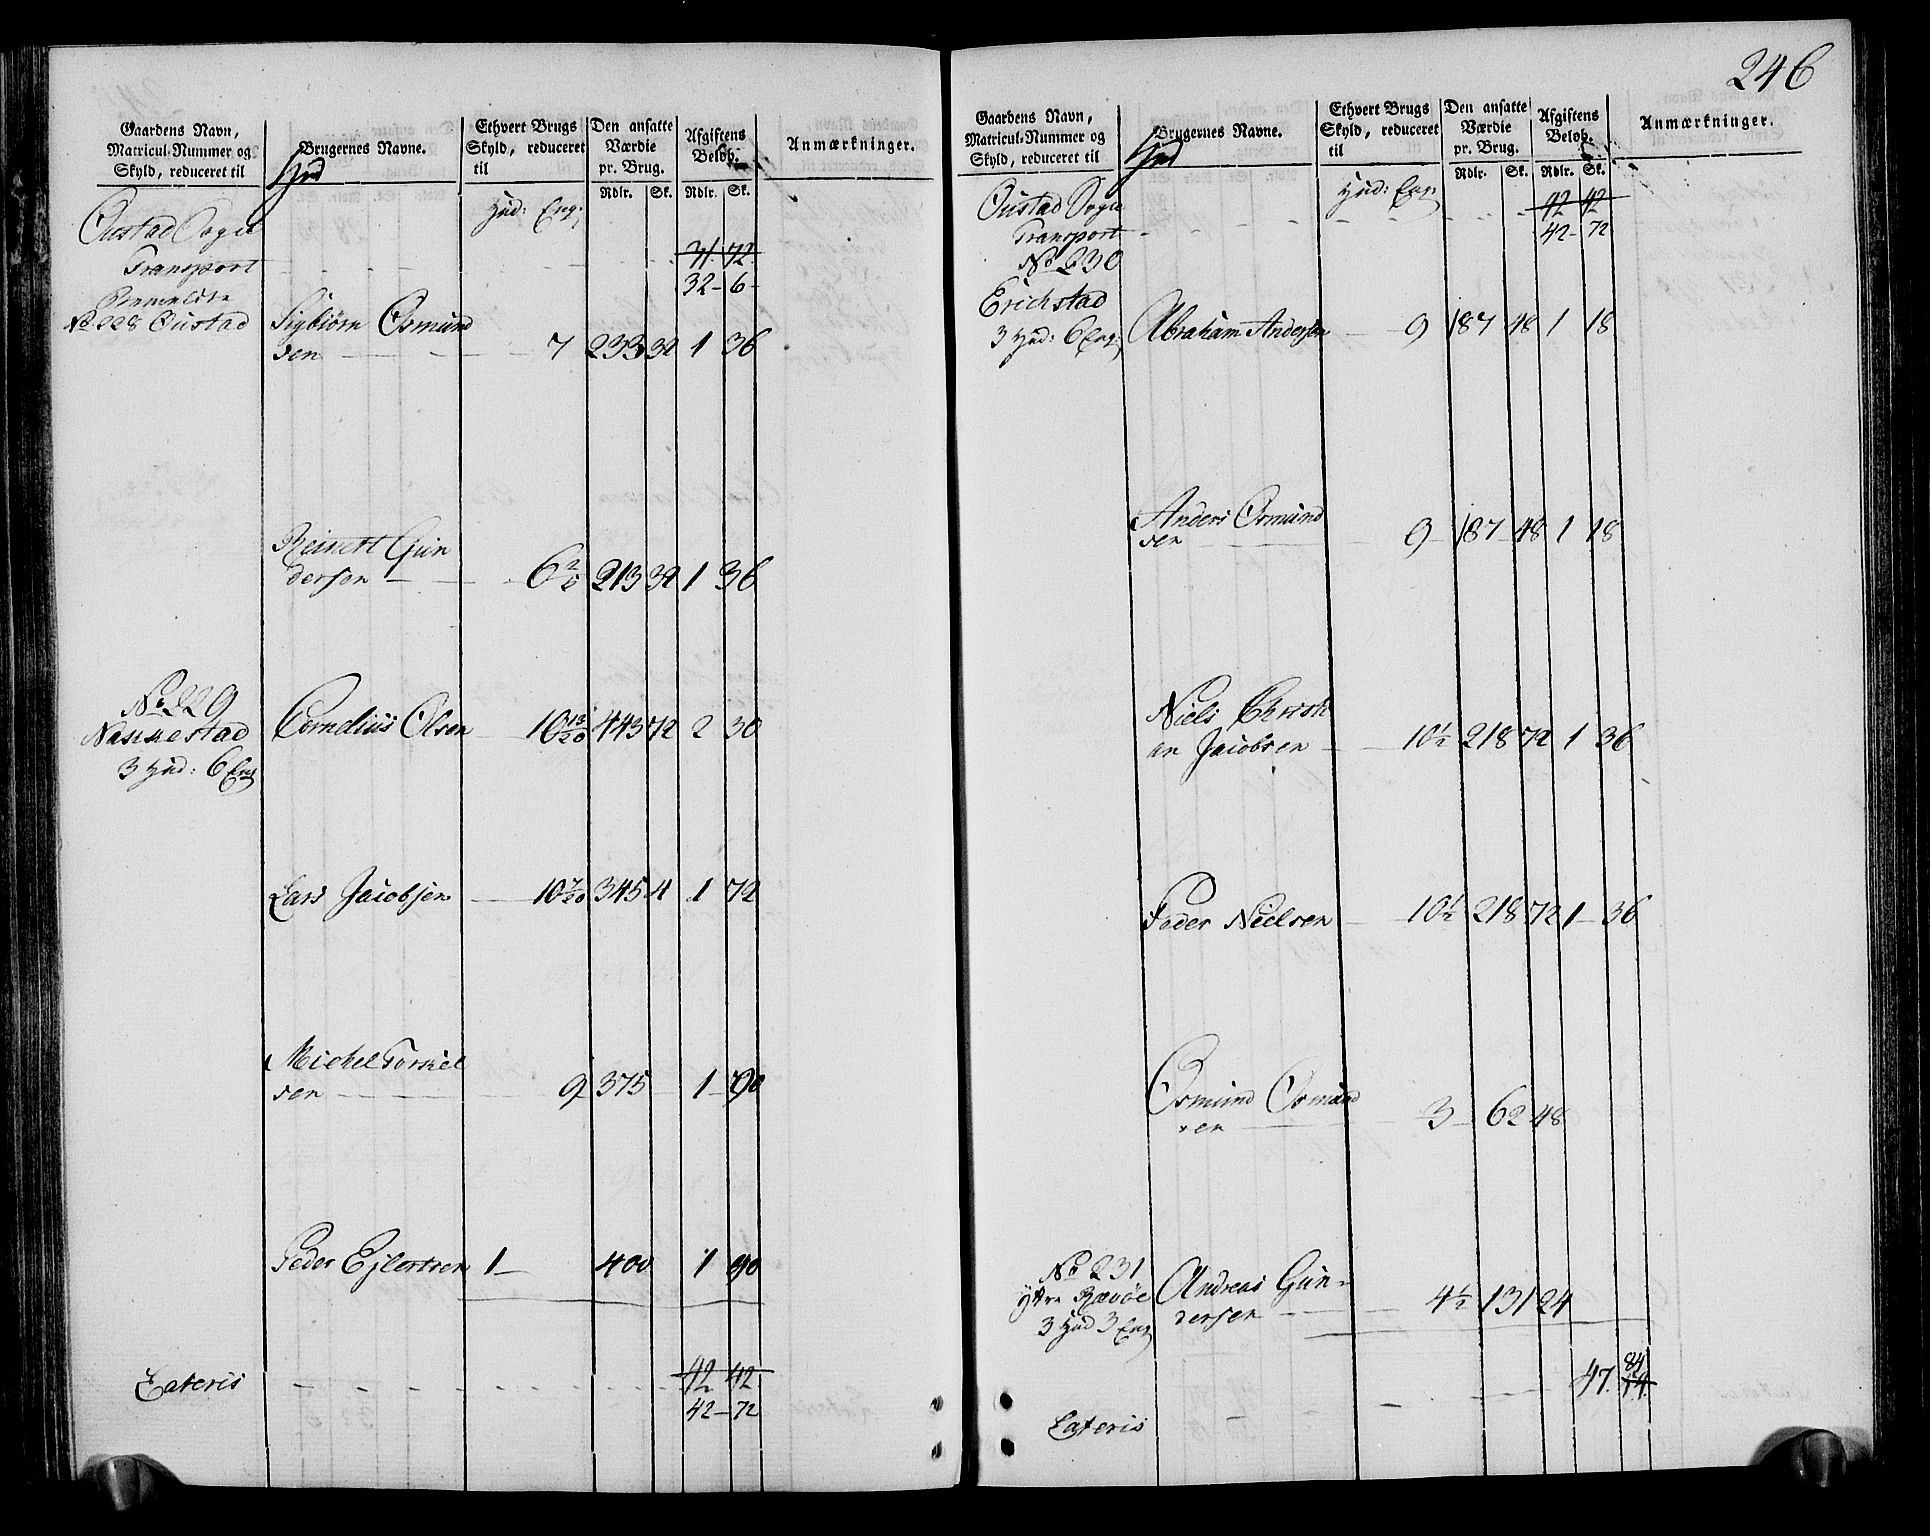 Gaardens Navn,
Matricul-Nummer og
Skyld, reduceret til
Brugernes Navne.
Ethvert Brugs
Skyld, reduceret
til
Den ansatte
Værdie
pr. Brug.
Rdlr. Sk.
Afgiftens
Beløb.
Rdlr. Sk.
Anmærkninger.
Hud: Eng:
Oustad Sogn
Transport 32 - 6
No 228 Oustad Sigbiørn Osmund
sen 7 233 32 1 36
Reinert Gun
dersen 6 2/5 213 32 1 36
No 229
Nannestad Cornelius Olsen 10 13/20 443 72 2 30
3 Hud: 6 Eng
Lars Jacobsen 10 7/20 345 4 1 72
Michel Torkiel
sen 9 375 1 90
Peder Ejlertsen 1 400 1 90
42 42
Lateris
42 - 72
246
Gaardens Navn,
Matricul-Nummer og
Skyld, reduceret til
Brugernes Navne.
Ethvert Brugs
Skyld, reduceret
til
Den ansatte
Værdie
pr. Brug.
Rdlr. Sk.
Afgiftens
Beløb.
Rdlr. Sk.
Anmærkninger.
Hud: Eng:
Oustad Sogn 42 42
Transport 42 - 72
No 230
Erichstad Abraham Andersen 9 187 48 1 18
3 Hud: 6 Eng:
Anders Osmund
sen 9 187 48 1 18
Niels Christi
an Jacobsen 10 1/2 218 72 1 36
Peder Nielsen 10 1/2 218 72 1 36
Osmund Osmund
sen 3 62 48
No 231
Yttre Rævøe Andreas Gun-
3 Hud 3 Eng dersen 4 1/2 131 24
47. 84
Lateris